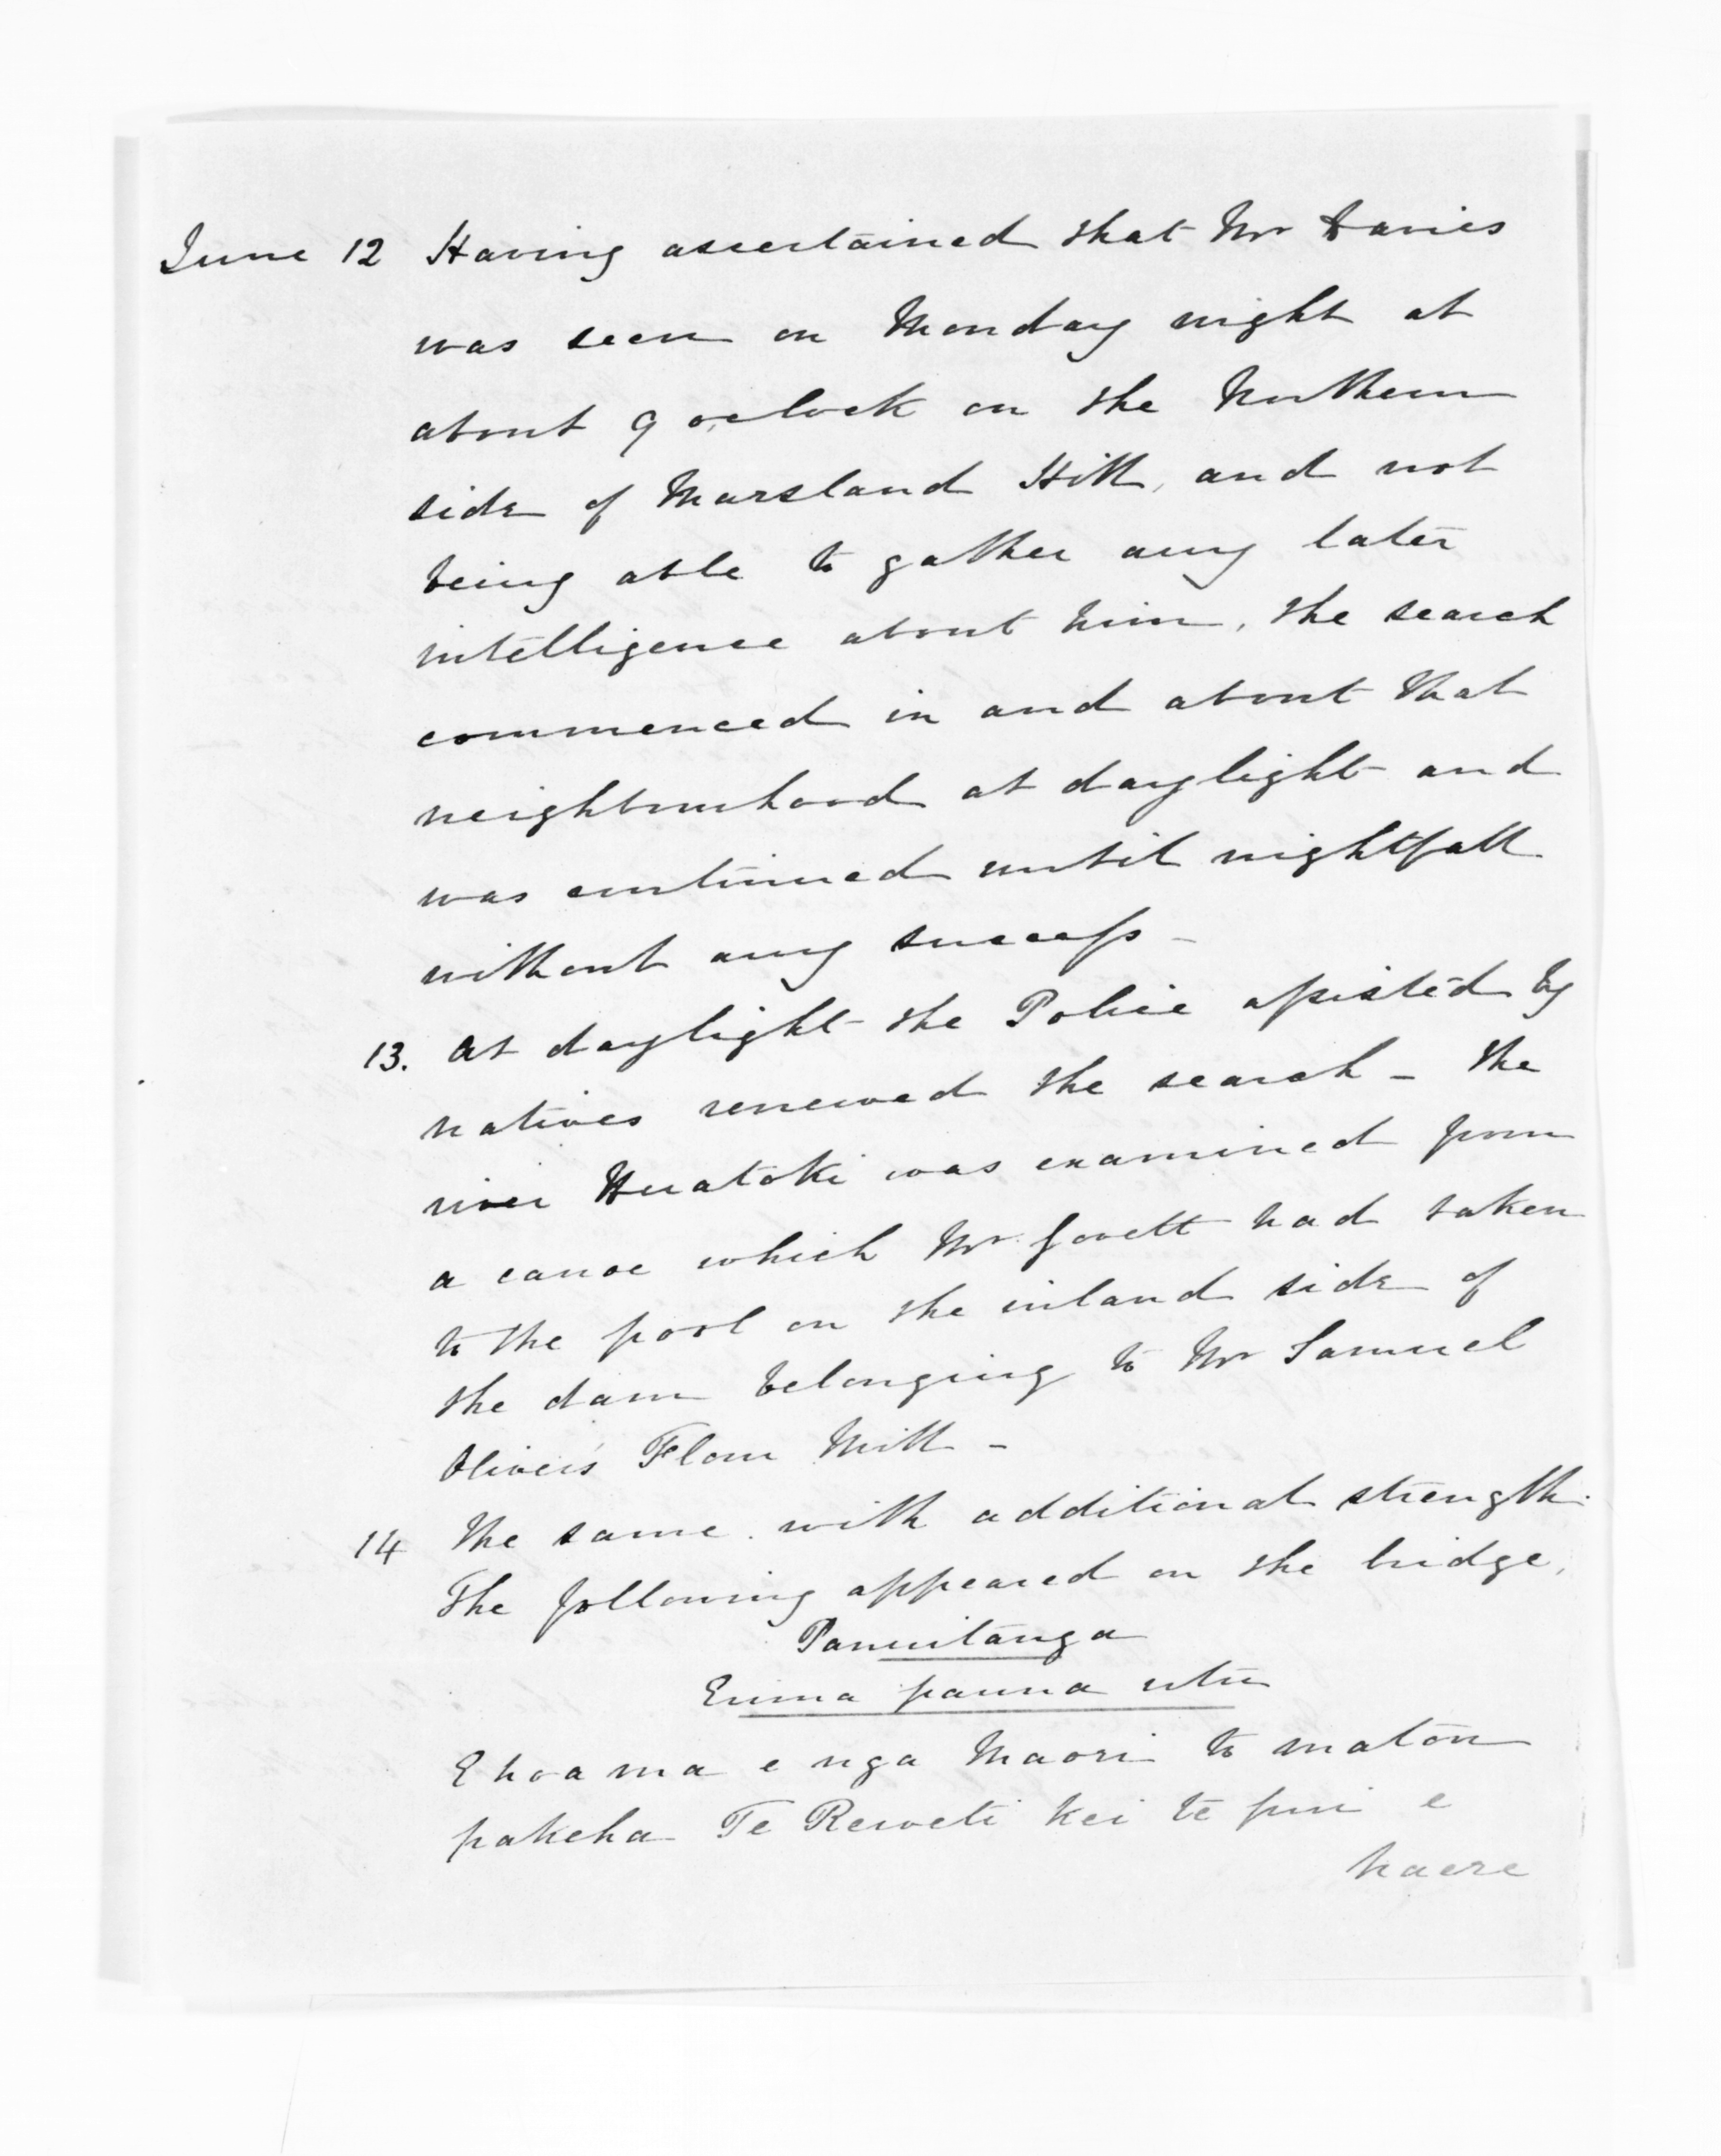 June 12 Having ascertained that Mr Davies
was seen on Monday night at
about 9 o,clock on the Northern
side of Marsland Hill, and not
being able to gather any later
intelligence about him, the search
commenced in and about that
neighbourhood at daylight and
was continued until nightfall
without any success -
13. At daylight the Police assisted by
natives renewed the search - The
river Huatoki was examined from
a canoe which Mr. Jovett had taken
to the pool on the inland side of
the dam belonging to Mr Samuel
Oliver's Flour Mill -
14 The same with additional strength.
The following appeared on the bridge,
Panuitanga
E rima pauna utu
E hoa ma e nga Maori to matou
pakeha Te Reweti kei te pui e
haere